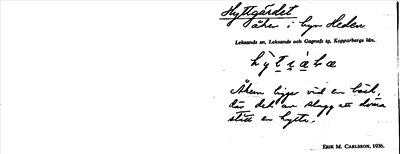 Hyttgärdet
åker i byn Heden
Leksands sn, Leksands och Gagnefs tg, Kopparbergs län.
Åkern ligger vid en bäck,
där det av slagg att döma
stått en hytta.
ERIK M. CARLSSON, 1936.